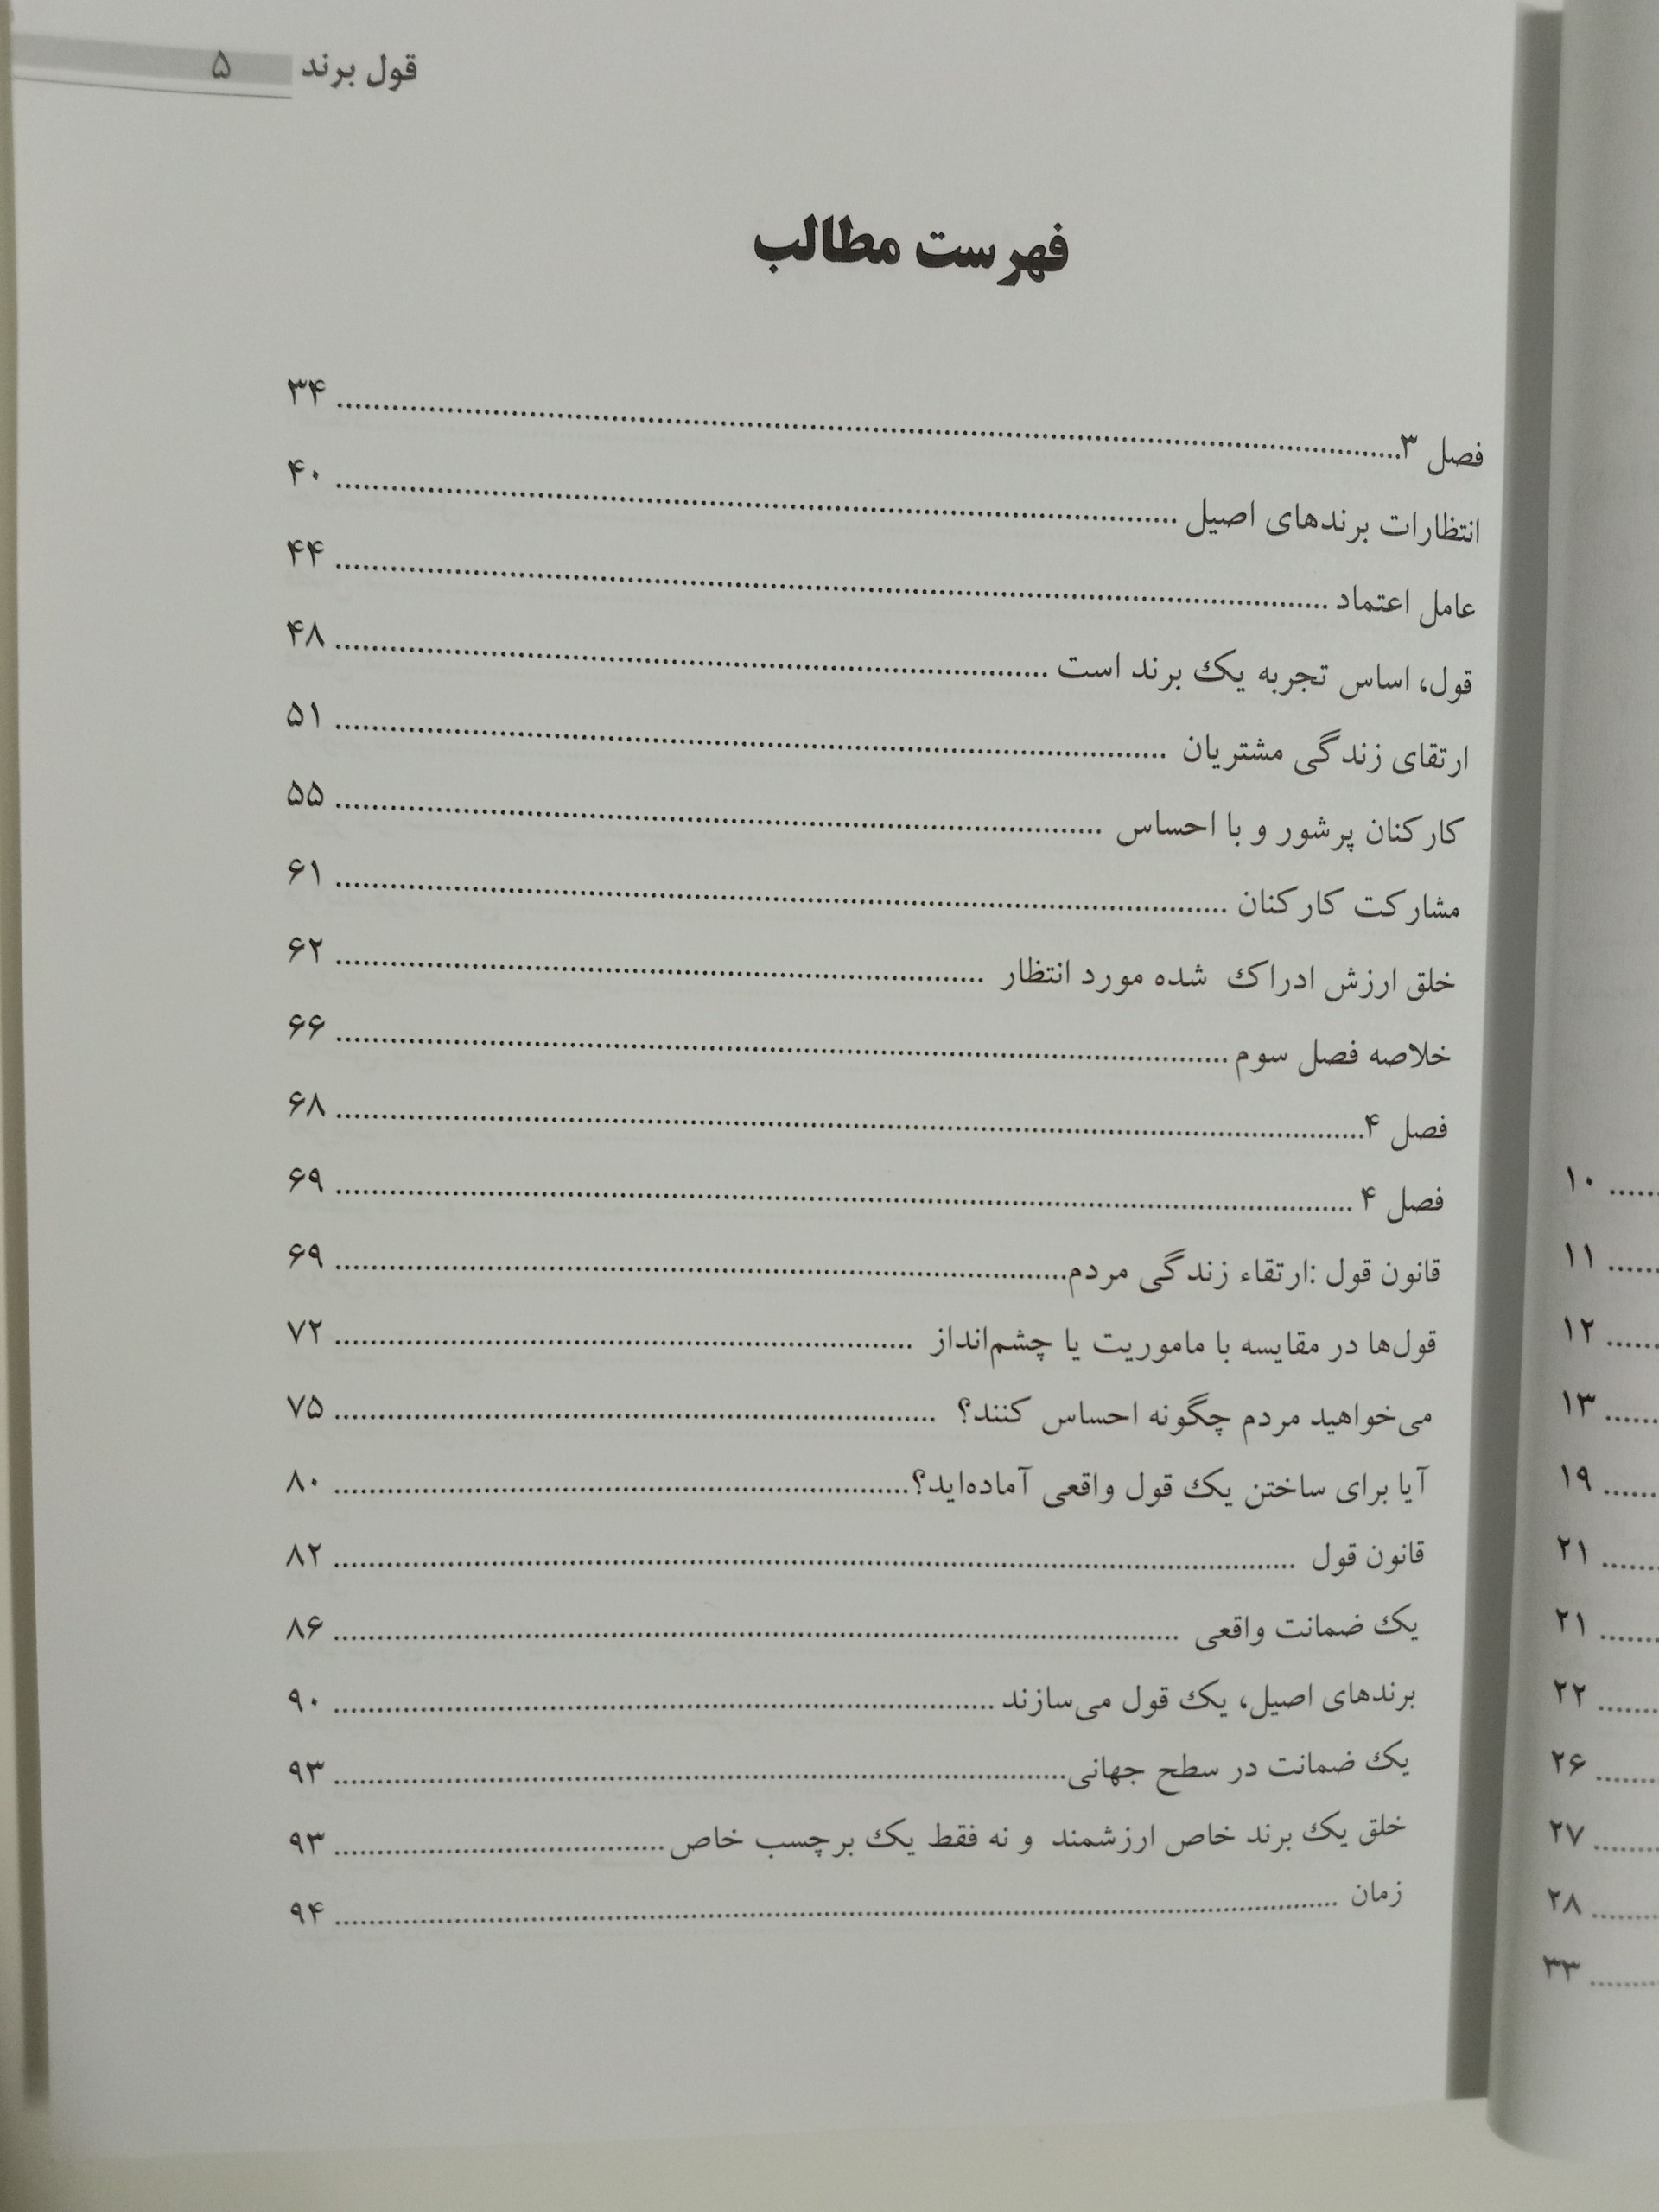 قول برند ۵
فهرست مطالب
فصل ۳........................ ۳۴
انتظارات برندهای اصیل ........................ ۴۰
عامل اعتماد ........................ ۴۴
قول، اساس تجربه یک برند است ........................ ۴۸
ارتقای زندگی مشتریان ........................ ۵۱
کارکنان پرشور و با احساس ........................ ۵۵
مشارکت کارکنان ........................ ۶۱
خلق ارزش ادراک شده مورد انتظار ........................ ۶۲
خلاصه فصل سوم ........................ ۶۶
فصل ۴........................ ۶۸
فصل ۴ ........................ ۶۹
قانون قول :ارتقاء زندگی مردم........................ ۶۹
قول‌ها در مقایسه با ماموریت یا چشم‌انداز ........................ ۷۲
می‌خواهید مردم چگونه احساس کنند؟ ........................ ۷۵
آیا برای ساختن یک قول واقعی آماده‌اید؟........................ ۸۰
قانون قول ........................ ۸۲
یک ضمانت واقعی ........................ ۸۶
برندهای اصیل، یک قول می‌سازند ........................ ۹۰
یک ضمانت در سطح جهانی........................ ۹۳
خلق یک برند خاص ارزشمند و نه فقط یک برچسب خاص........................ ۹۳
زمان ........................ ۹۴
...... ۱۰
...... ۱۱
...... ۱۲
...... ۱۳
...... ۱۹
...... ۲۱
...... ۲۱
...... ۲۲
...... ۲۶
...... ۲۷
...... ۲۸
...... ۳۳